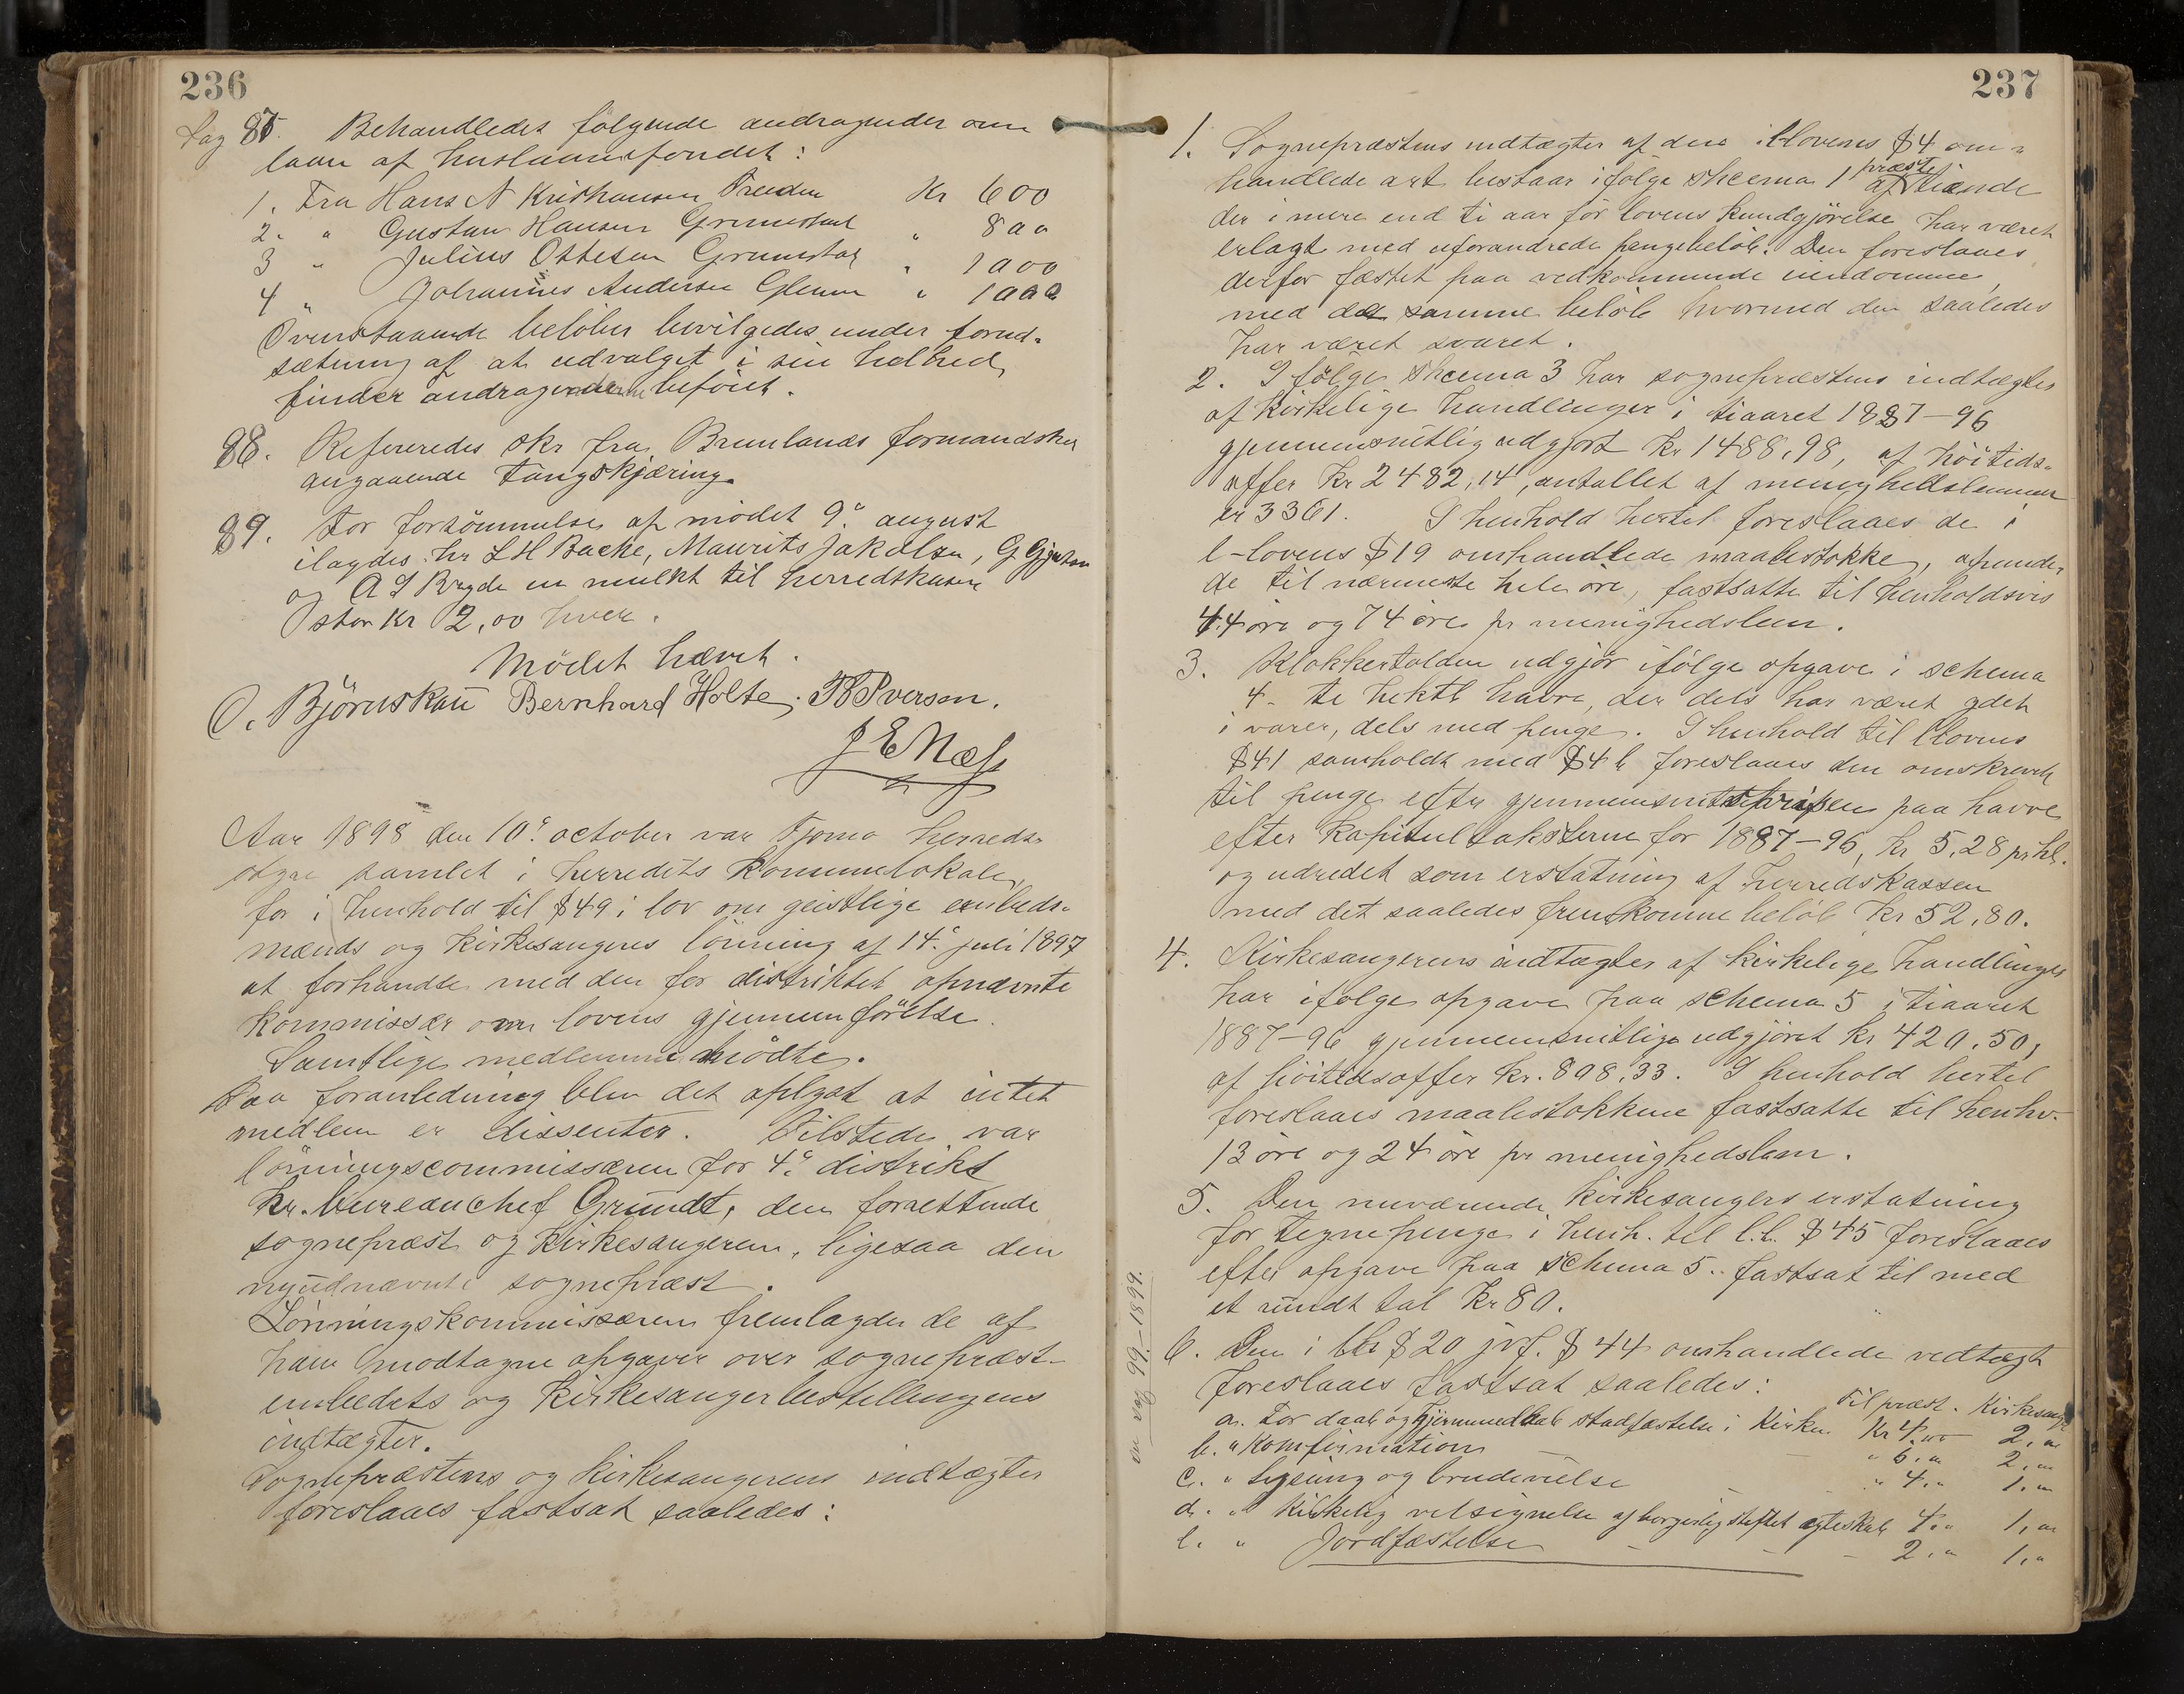 236
Sag 87. Behandledes følgende andragender om
laan af huslaanefondet:
1. Fra Hans N Kristiansen Kr 600
2. " Gustav Hansen Grimestad " 800
3 " Julius Ottesen Grimestad " 1000
4 " Johannes Andersen Glenne " 1000
Ovenstaaende beløber bevilgedes under forud-
sætning af at udvalget i sin helhed
finder andragenderne beføiet.
88. Refereredes skr fra Brunlanæs formandskab
angaaende tangskjæring.
89. For forsømmelse af mødet 9de august
ilagdes hr L H Backe, Maurits Jakobsen, G Gjertsen
og A S Bryde en mulkt til herredskassen
stor Kr 2,00 hver.
Mødet hævet.
O. Bjørnskau Bernhard Holte. K Iversen.
J E Næss
Aar 1898 den 10de october var Tjømø herreds-
styre samlet i herredets kommunelokale,
for i henhold til § 49 i lov om geistlige embeds-
mænds og kirkesangeres lønning af 14de juli 1897
at forhandle med den for distriktet opnævnte
kommissær om lovens gjennemførelse.
Samtlige medlemmer mødte.
Paa foranledning blev det oplyst at intet
medlem er dissenter. Tilstede var
lønningscommissæren for 4de distrikt
hr. bureauchef Grundt, den forrettende
sognepræst og kirkesangeren, ligesaa den
nyudnævnte sognepræst.
Lønningskommissæren fremlagde de af
ham modtagne opgaver over sognepræst-
embedets og kirkesangerbestillingens
indtægter.
Sognepræstens og kirkesangerens indtægter
foreslaaes fastsat saaledes:
237
1. Sognepræstens indtægter af den i l-lovens § 4 om-
handlede art bestaar ifølge skeema 1 af præstetiende
der i mere end ti aar før lovens kundgjørelse har været
erlagt med uforandrede pengebeløb. Den foreslaaes
derfor fæstet paa vedkommende eiendomme,
med de samme beløb hvormed den saaledes
har været svaret.
2. I følge skeema 3 har sognepræstens indtægter
af kirkelige handlinger i tiaaret 1887-96
gjennemsnitlig udgjort Kr 1488,98, af høitids-
offer Kr 2482,14, antallet af menighedslemmer
er 3361. I henhold hertil foreslaaes de i
l-lovens § 19 omhandlede maalestokke, afrunde-
de til nærmeste hele øre, fastsatte til henholdsvis
44 øre og 74 øre pr menighedslem.
3. Klokkertolden udgjør ifølge opgave i schema
4 - ti hektl havre, der dels har været ydet
i varer, dels med penge. I henhold til l-lovens
§ 41 samholdt med § 4 b foreslaaes den omskrevet
til penge efter gjennemsnitsprisen paa havre
efter kapitulstaksterne for 1887-96, kr 5,28 pr hl.
og udredet som erstatning af herredskassen
med det saaledes fremkomne beløb kr 52,80.
4. Kirkesangerens indtægter af kirkelige handlinger
har ifølge opgave paa schema 5 i tiaaret
1887-96 gjennemsnitlige udgjöret kr 420,50,
af høitidsoffer kr. 808,33. I henhold hertil
foreslaaes maalestokkene fastsatte til henhv.
13 øre og 24 øre pr menighedslem.
5. Den nuværende kirkesangers erstatning
for tegnepenge i henh. til l.l. § 45 foreslaaes
efter opgave paa schema 5.. fastsat til med
et rundt tal Kr 80.
6. Den i § 20 jvf. § 44 omhandlede vedtægt
foreslaaes fastsat saaledes:
Til præst. Kirkesang
a. For daab og hjemmedaabs stadfæstelse i Kirken Kr 4,00 2,00
b. " Konfirmation — " 6,00 2,00
c. " Lysning og brudevielse — " 4,00 1,00
d. " Kirkelig velsignelse af borgerlig stiftet ægteskab 4,00 1,00
e. " Jordfæstelse — — — 2,00 1,00
sag 99-1899.